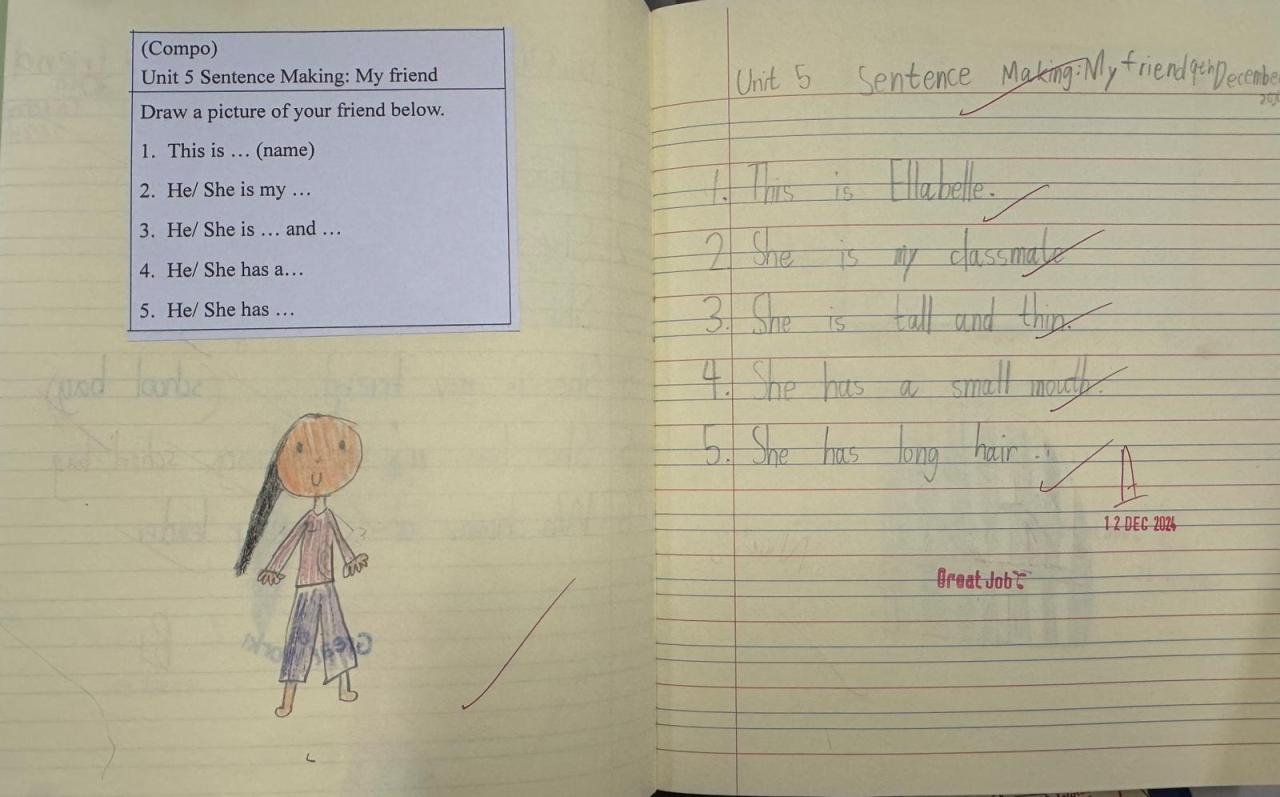 (Compo)
Unit 5 Sentence Making: My friend
Draw a picture of your friend below.
1. This is … (name)
2. He/ She is my …
3. He/ She is … and …
4. He/ She has a…
5. He/ She has …
Unit 5 Sentence Making: My friend 9th December
1. This is Ellabelle.
2. She is my classmate
3. She is tall and thin.
4. She has a small mouth.
5. She has long hair.
A
12 DEC 2024
Great Job